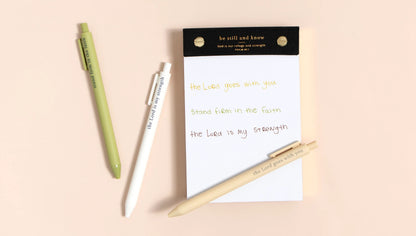 be still and know
God is our refuge and strength
PSALM 46:1
the LORD goes with you
stand firm in the faith
the LORD is my STRENGTH
the Lord is my strength
the Lord goes with you